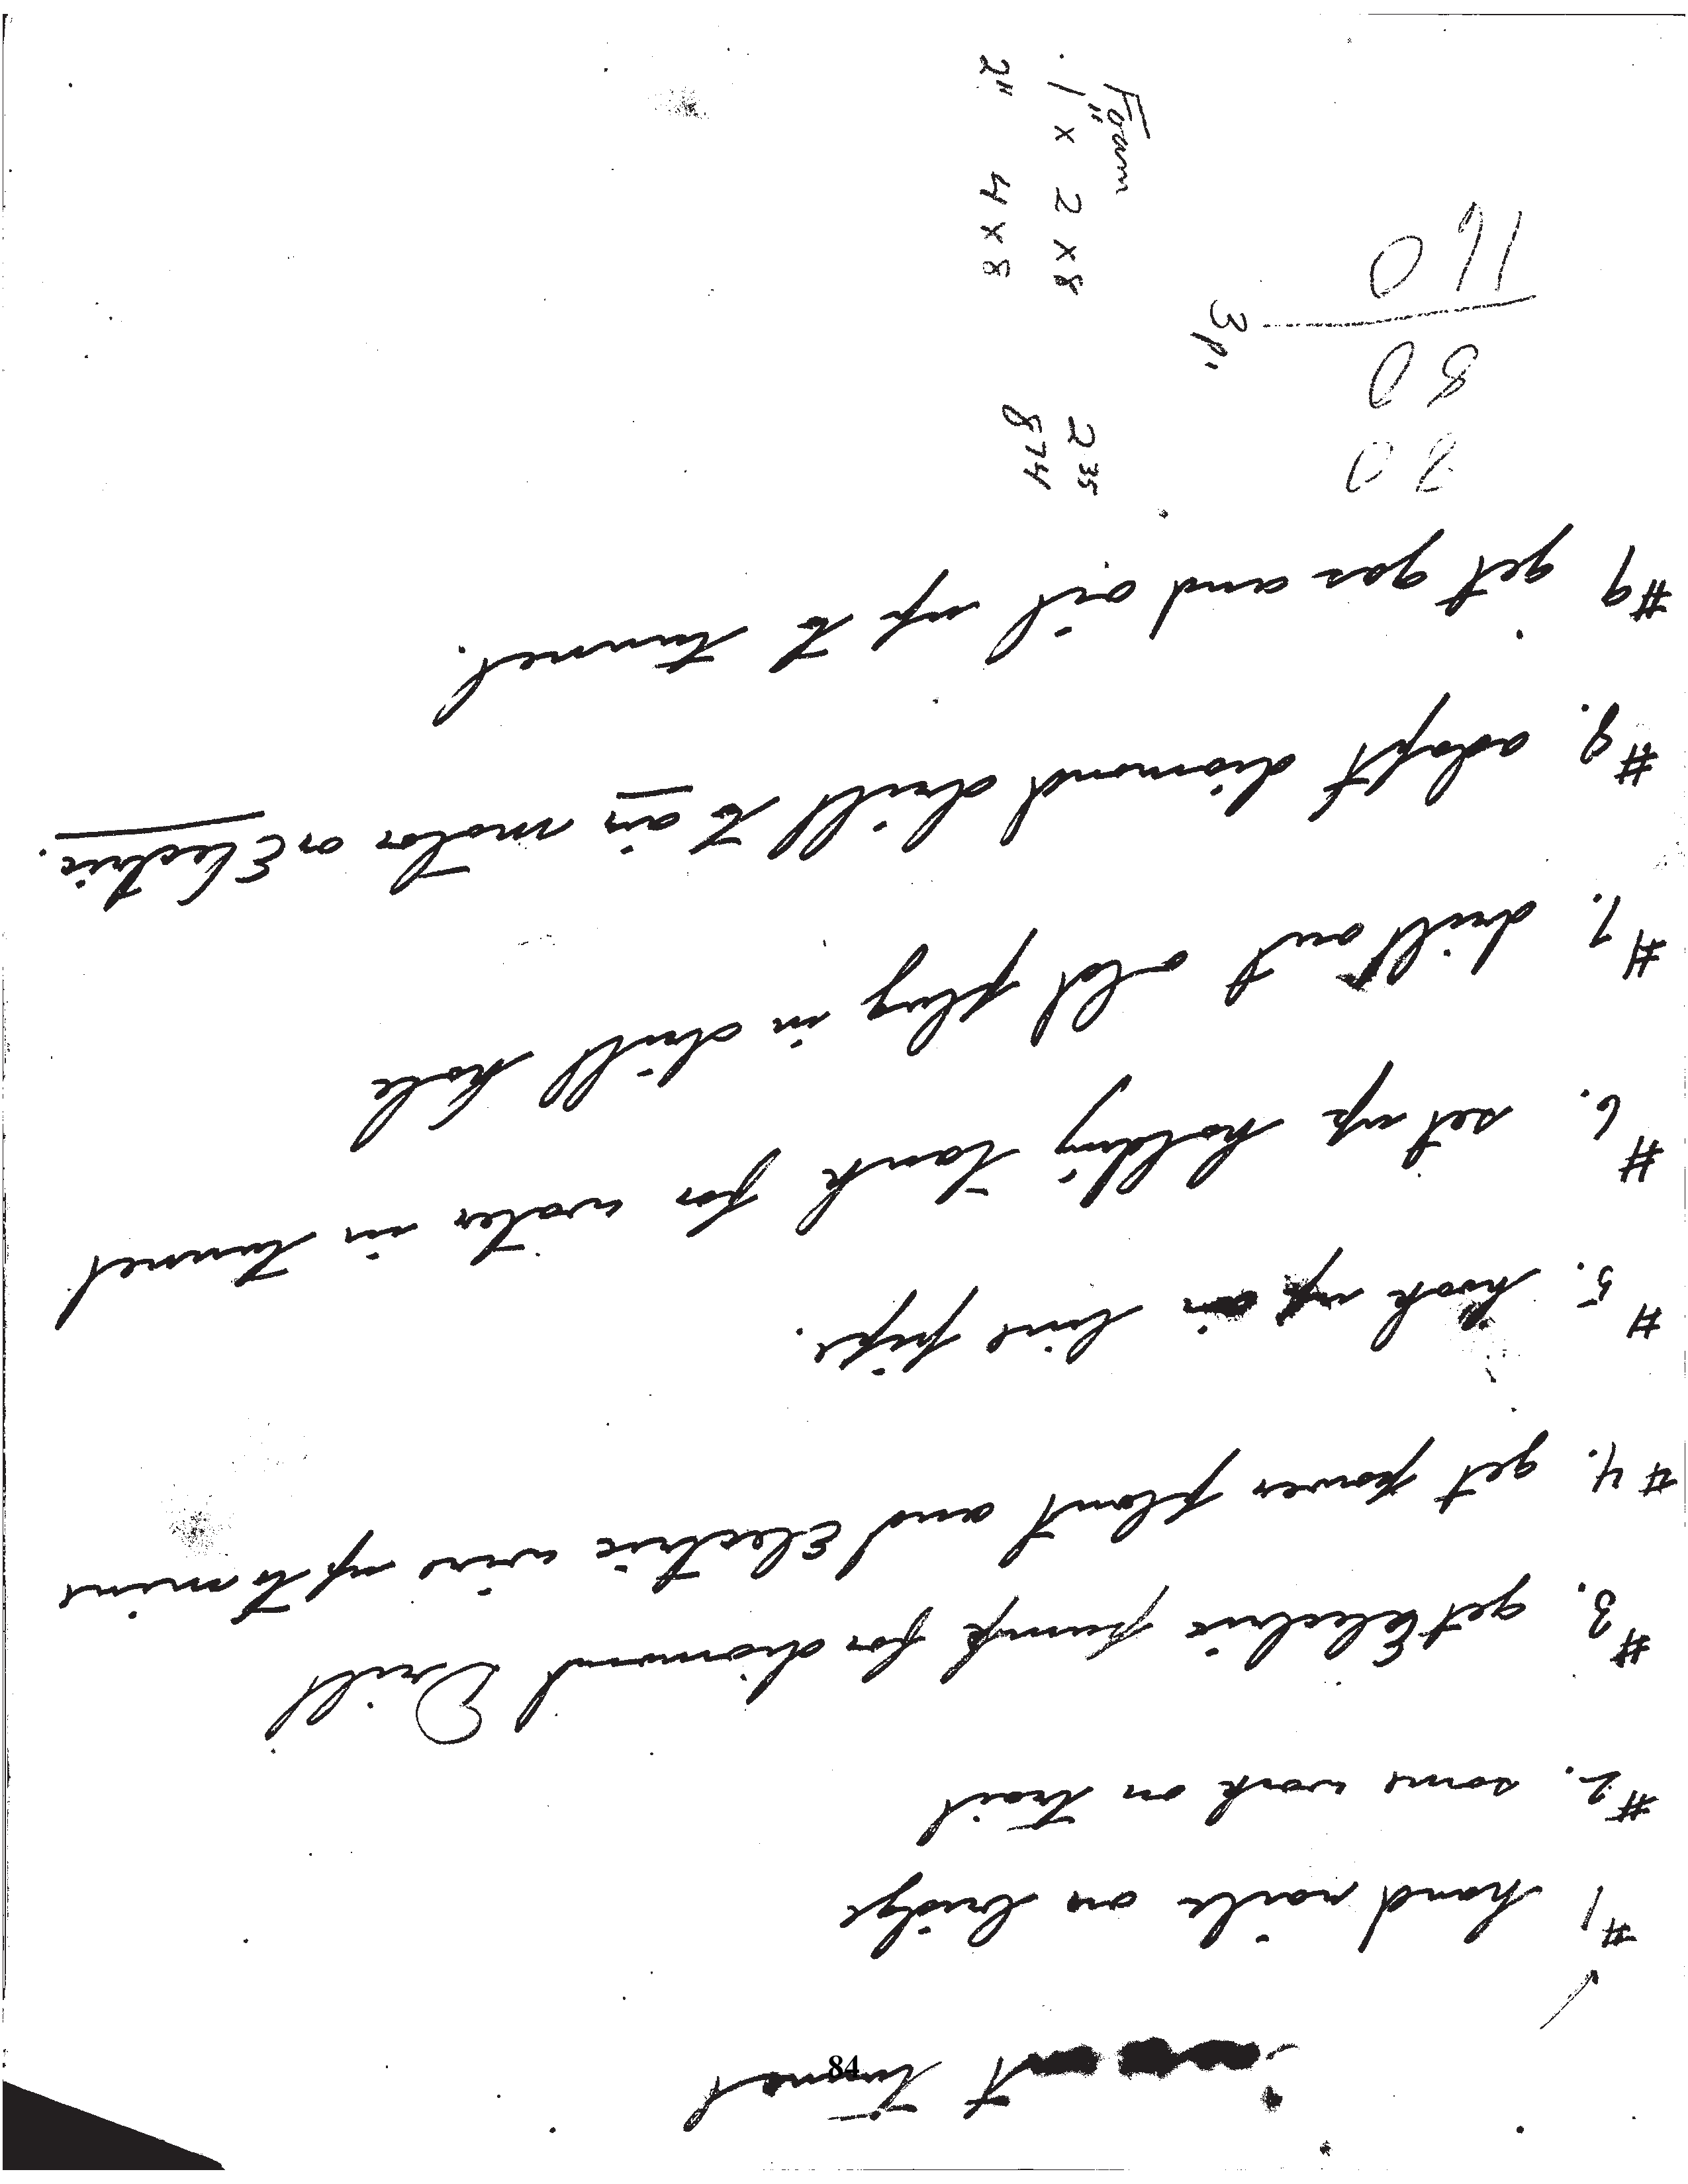 t Tunnel
#1 hand rails on bridge
#2. some work on trail
#3. get Electric pump for diamond Drill
#4. get power plant and Electric wire up to mine
#5. hook up air line pipe.
#6. set up holding tank for water in tunnel
#7. drill out old plug in drill hole
#8. adapt diamond drill to air motor or Electric.
#9 get gas and oil up to tunnel.
80
80
160
3 p'
Foam
1" x 2 x 8 2 35
2" 4 x 8 8 74
84